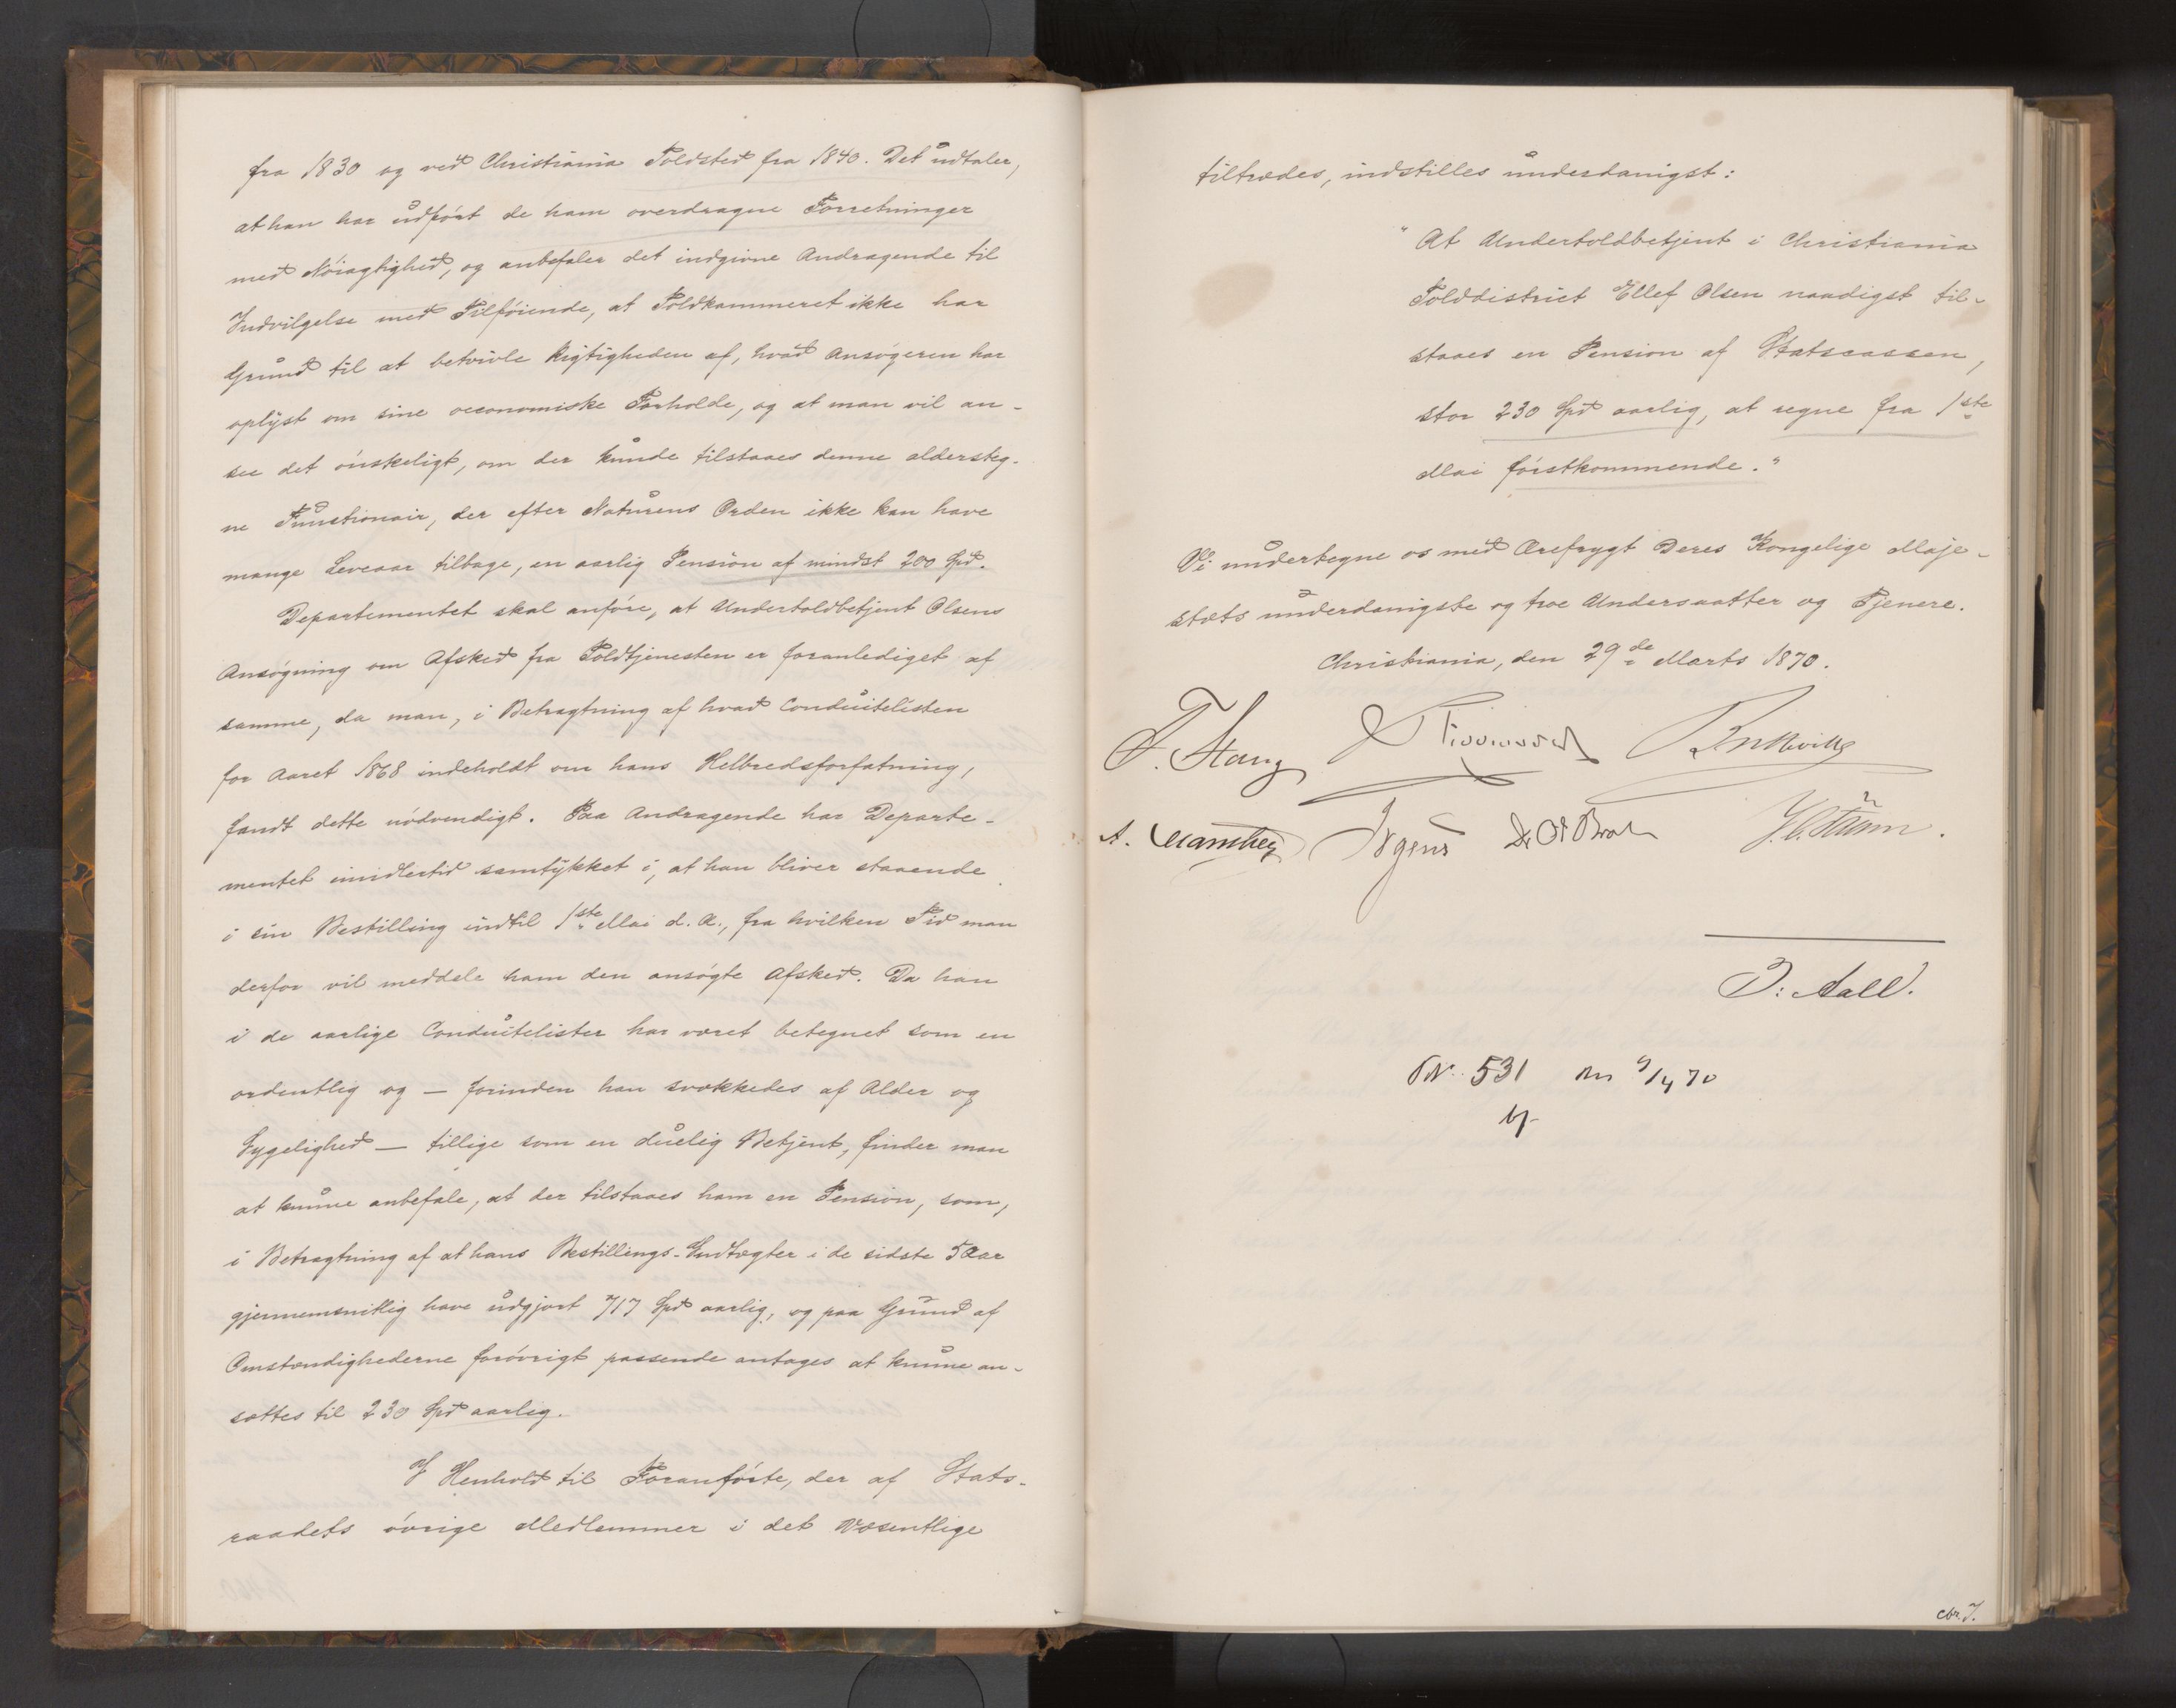 fra 1830 og ved Christiania Toldsted fra 1840. Det udtaler,
at han har udført de ham overdragne Forretninger
med Nøiagtighed, og anbefaler det indgivne Andragende til
Indvilgelse med Tilføiende, at Toldkammeret ikke har
Grund til at betvivle Rigtigheden af, hvad Ansøgeren har
oplyst om sine oeconomiske Forholde, og at man vil an-
see det ønskeligt, om der kunde tilstaaes denne aldersteg-
ne Functionair, der efter Naturens Orden ikke kan have
mange Leveaar tilbage, en aarlig Pension af mindst 200 Spd.
Departementet skal anføre, at Undertoldbetjent Olsens
Ansøgning om Afsked fra Toldtjenesten er foranlediget af
samme, da man, i Betragtning af hvad Conduitelisten
for Aaret 1868 indeholdt om hans Helbredsforfatning,
fandt dette nødvendigt. Paa Andragende har Departe-
mentet imidlertid samtykket i, at han bliver staaende
i sin Bestilling indtil 1ste Mai d. A., fra hvilken Tid man
derfor vil meddele ham den ansøgte Afsked. Da han
i de aarlige Conduitelister har været betegnet som en
ordentlig og — forinden han svækkedes af Alder og
Sygelighed — tillige som en duelig Betjent, finder man
at kunne anbefale, at der tilstaaes ham en Pension, som,
i Betragtning af at hans Bestillings-Indtægter i de sidste 5 Aar
gjennemsnitlig have udgjort 717 Spd aarlig, og paa Grund af
Omstændighederne forøvrigt passende antages at kunne an-
sættes til 230 Spd aarlig.
I Henhold til Foranførte, der af Stats-
raadets øvrige Medlemmer i det Væsentlige
tiltrædes, indstilles underdanigst:
"At Undertoldbetjent i Christiania
Tolddistrict Ellef Olsen naadigst til-
staaes en Pension af Statscassen,
stor 230 Spd aarlig, at regne fra 1ste
Mai førstkommende."
Vi undertegne os med Ærefrygt Deres Kongelige Maje-
stæts underdanigste og troe Undersaatter og Tjenere.
Christiania, den 29de Marts 1870.
F. Stang
A. Manthey Irgens
J. Aall.
No. 531 9/4 70